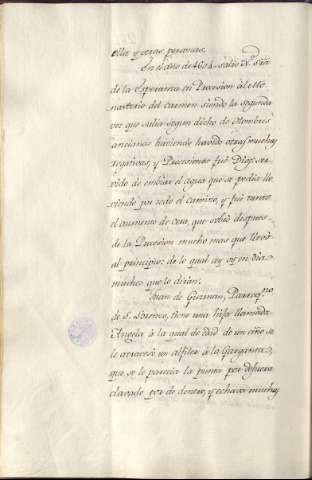 ella y otras personas.
En el año de 1604. salió N.ª S.ra
de la Esperanza en Procesion al Mo-
nasterio del Carmen siendo la segunda
vez que salia segun dicho de Hombres
ancianos haviendo havido otras muchas
rogativas, y Procesiones fué Dios ser-
vido de embiar el agua que se pedia llo-
viendo por todo el camino, y fué tanto
el aumento de cera, que sobró despues
de la Procesion mucho mas que llevó
al principio: de lo qual ay oy en dia
muchos que lo dirán.
Juan de Guzman, Parroq.no
de S. Lorenzo, tiene una hija llamada
Angela à la qual de edad de un año se
le atravesó un alfiler à la Garganta,
que se le parecia la punta por defuera
clavado por de dentro, y echava mucha